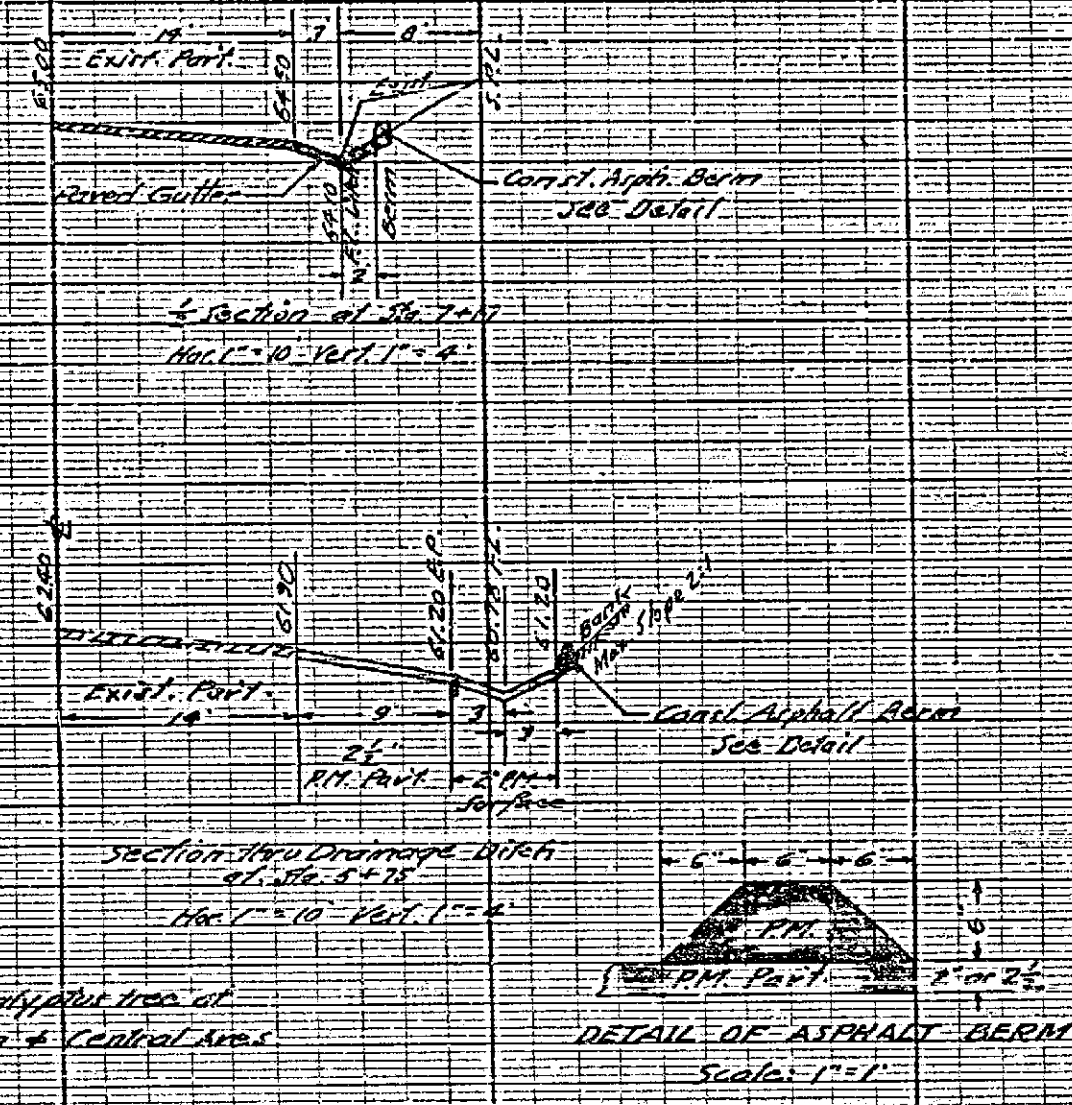 14' 7 8'
Exist. Pavt.
65.00
64.50
Exist.
S.P.L.
Paved Gutter
64.10 F.L.
Berm
Const. Asph. Berm
See Detail
2
½ Section at Sta. 7+17
Hor. 1"=10' Vert. 1"=4'
62.40
61.90
61.20 E.P.
60.78 F.L.
61.20
Bank
Max. Slope 2:1
Exist. Pavt.
14' 9' 3' 3'
Const. Asphalt Berm
See Detail
2½"
P.M. Pavt. 2" P.M.
Surface
Section thru Drainage Ditch
at Sta. 5+75
Hor. 1"=10' Vert. 1"=4'
6" 6" 6"
P.M.
6"
P.M. Pavt. 2" or 2½"
alyptus tree at
& Central Aves.
DETAIL OF ASPHALT BERM
Scale: 1"=1'